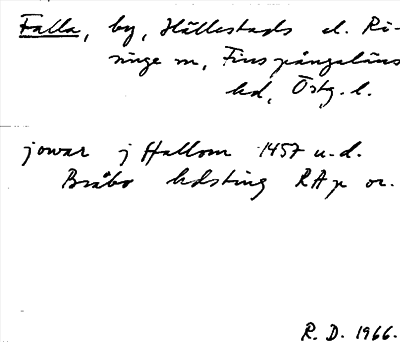 Falla, by, Hällestads el. Ri-
singe sn, Finspångaläns
hd, Östg. l.
jowar j Hallom 1457 u.d.
Bråbo hdsting RAp or.
R. D. 1966.